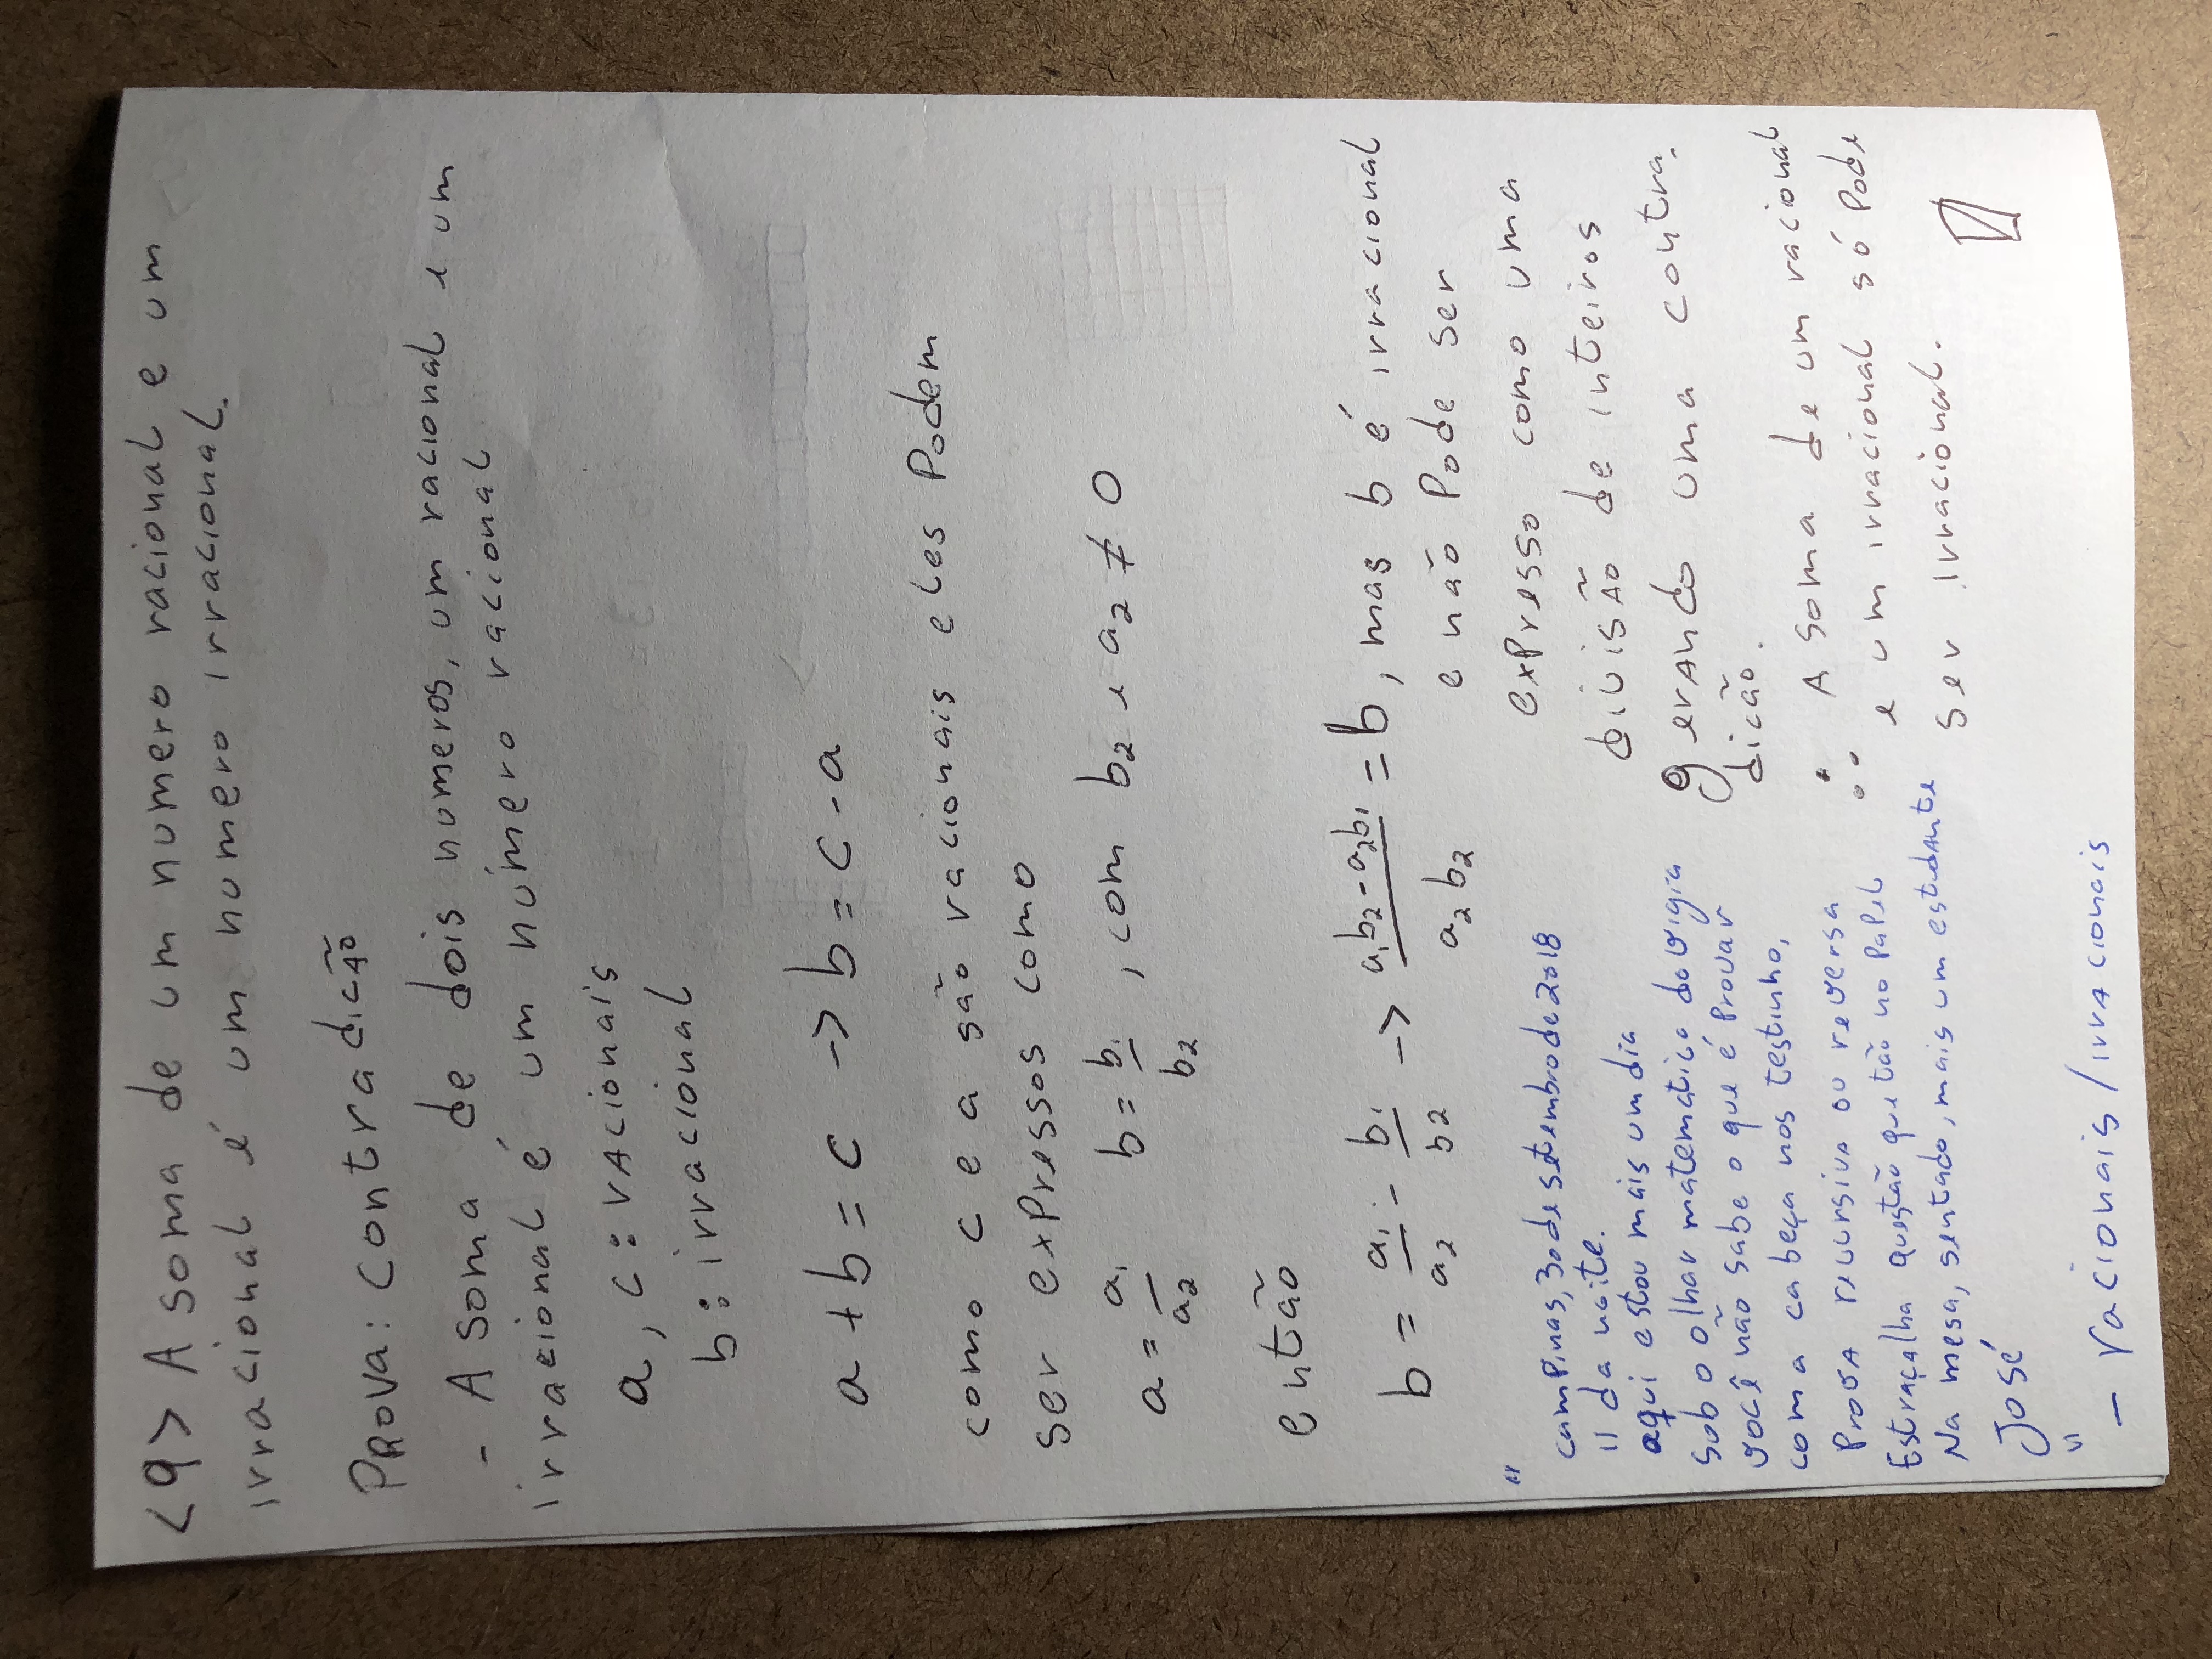 <9> A soma de um numero racional e um
irracional é um numero irracional.
Prova: contradicão
- A soma de dois numeros, um racional e um
irracional é um número racional
a, c: racionais
b: irracional
a + b = c -> b = c - a
como c e a são racionais eles podem
ser expressos como
a = a₁/a₂ b = b₁/b₂, com b₂ e a₂ ≠ 0
então
b = a₁/a₂ - b₁/b₂ -> (a₁b₂ - a₂b₁)/(a₂b₂) = b, mas b é irracional
e não pode ser
expresso como uma
divisão de inteiros
gerando uma contra
dicão.
∴ A soma de um racional
e um irracional só pode
ser irracional.
"
campinas, 30 de setembro de 2018
11 da noite.
aqui estou mais um dia
sob o olhar matematico do vigia
você não sabe o que é provar
com a cabeça nos testinho,
prova recursiva ou reversa
Estraçalha questão que tão no papel
Na mesa, sentado, mais um estudante
José
"
- racionais/irracionais